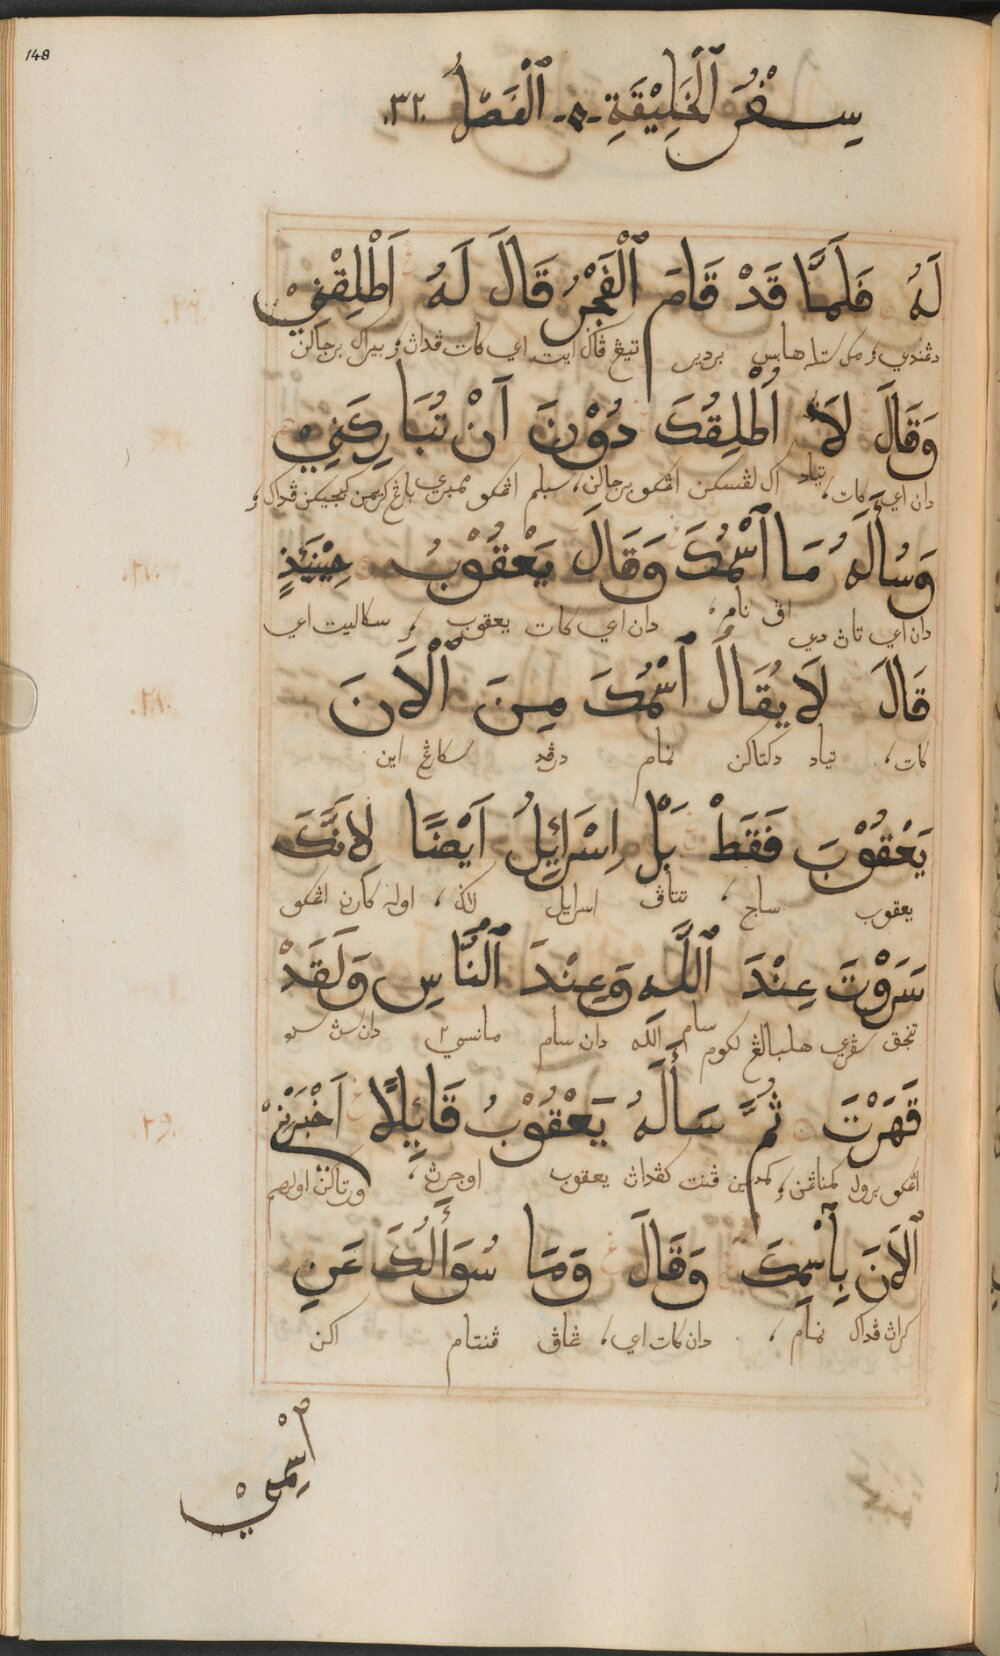 148
سِفْرُ ٱلْخَلِيْقَةِ ٱلْفَصْلُ ٣٢.
لَهُ فَلَمَّا قَدْ قَامَ ٱلْفَجْرُ قَالَ لَهُ اَطْلِقْنِيْ
دڠندي، مک ستله هابس برديري تيڠ ڤاݢ ايت اي کات ڤداڽ، بيراله برجالن
وَقَالَ لَا اُطْلِقُكَ دُوْنَ اَنْ تُبَارِكَنِيْ
دان اي کات، تياد اک لڤسکن اڠکو برجالن، سبلم اڠکو ممبري
وَسُألَهُ مَا ٱسْمُكَ وَقَالَ يَعْقُوْبُ حِيْنَئِذٍ
دان اي تاڽ دي اڤ نامم، دان اي کات يعقوب، سکاليت اي
قَالَ لَا يُقَالُ ٱسْمُكَ مِنَ ٱلْاَنَ
کات، تياد دکتاکن نمام درڤد سکارڠ اين
يَعْقُوْبَ فَقَطْ بَلْ اِسْرَائِيلُ اَيْضًا لِاَنَّكَ
يعقوب ساج، تتاڤ اسرايل لاݢي، اوله کارن اڠکو
سَرَوْتَ عِنْدَ ٱللّٰهِ وَعِنْدَ ٱلنَّاسِ وَلَقَدْ
سڤرتي هلبالڠ لکوم سام الله دان سام مانسي٢ دان
قَهَرْتَ ثُمَّ سَأَلَهُ يَعْقُوْبُ قَائِلًا اَخْبَرْنِيْ
اڠکو براوله کمناڠن، کمدين ڤنت کڤداڽ يعقوب اوجرڽ، ورتاکن اولهم
ٱلْاَنَ بِٱسْمِكَ وَقَالَ وَمَا سُوَالُكَ عَنِ
کراڽ ڤداک نمام، دان کات اي، مڠاڤ ڤنتام اکن
اِسْمِيْ